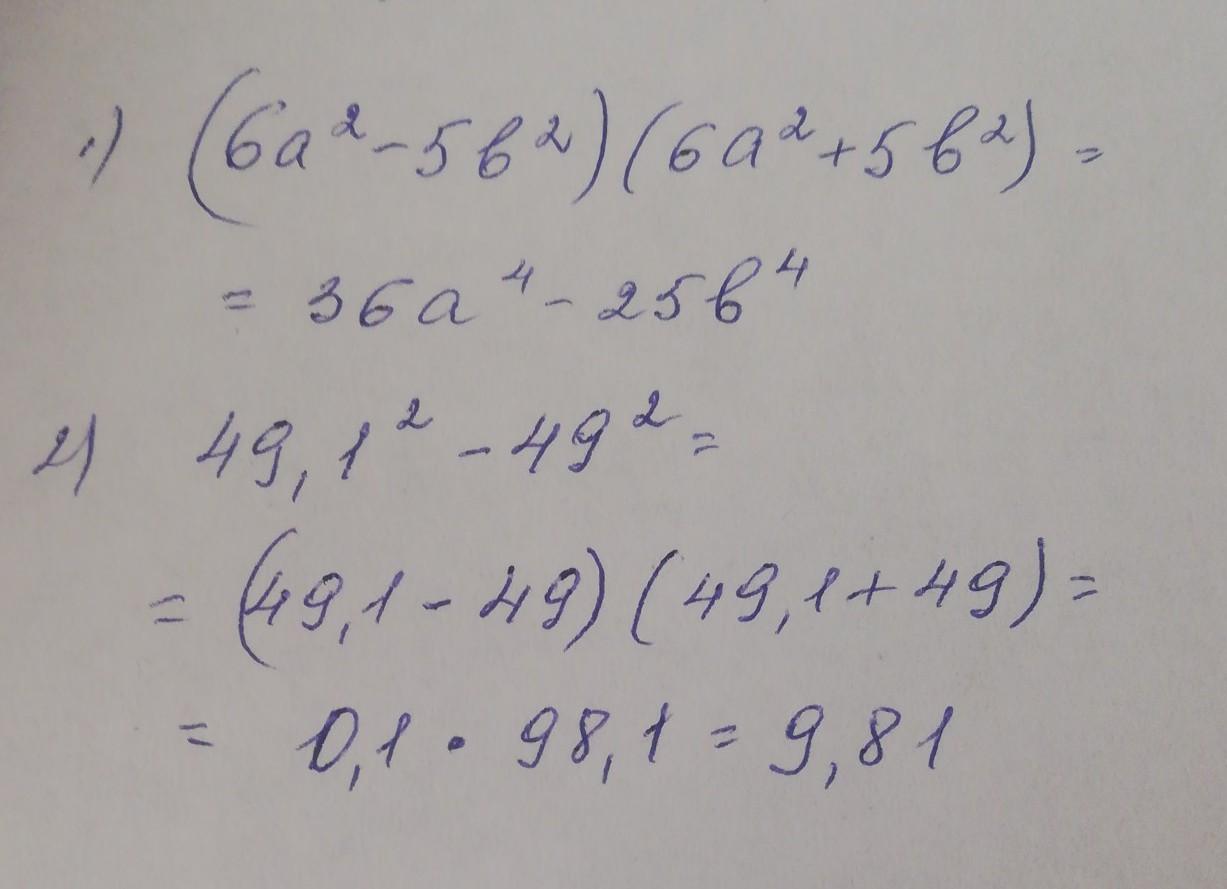 1) (6a² - 5b²)(6a² + 5b²) =
= 36a⁴ - 25b⁴
2) 49,1² - 49² =
= (49,1 - 49)(49,1 + 49) =
= 0,1 · 98,1 = 9,81